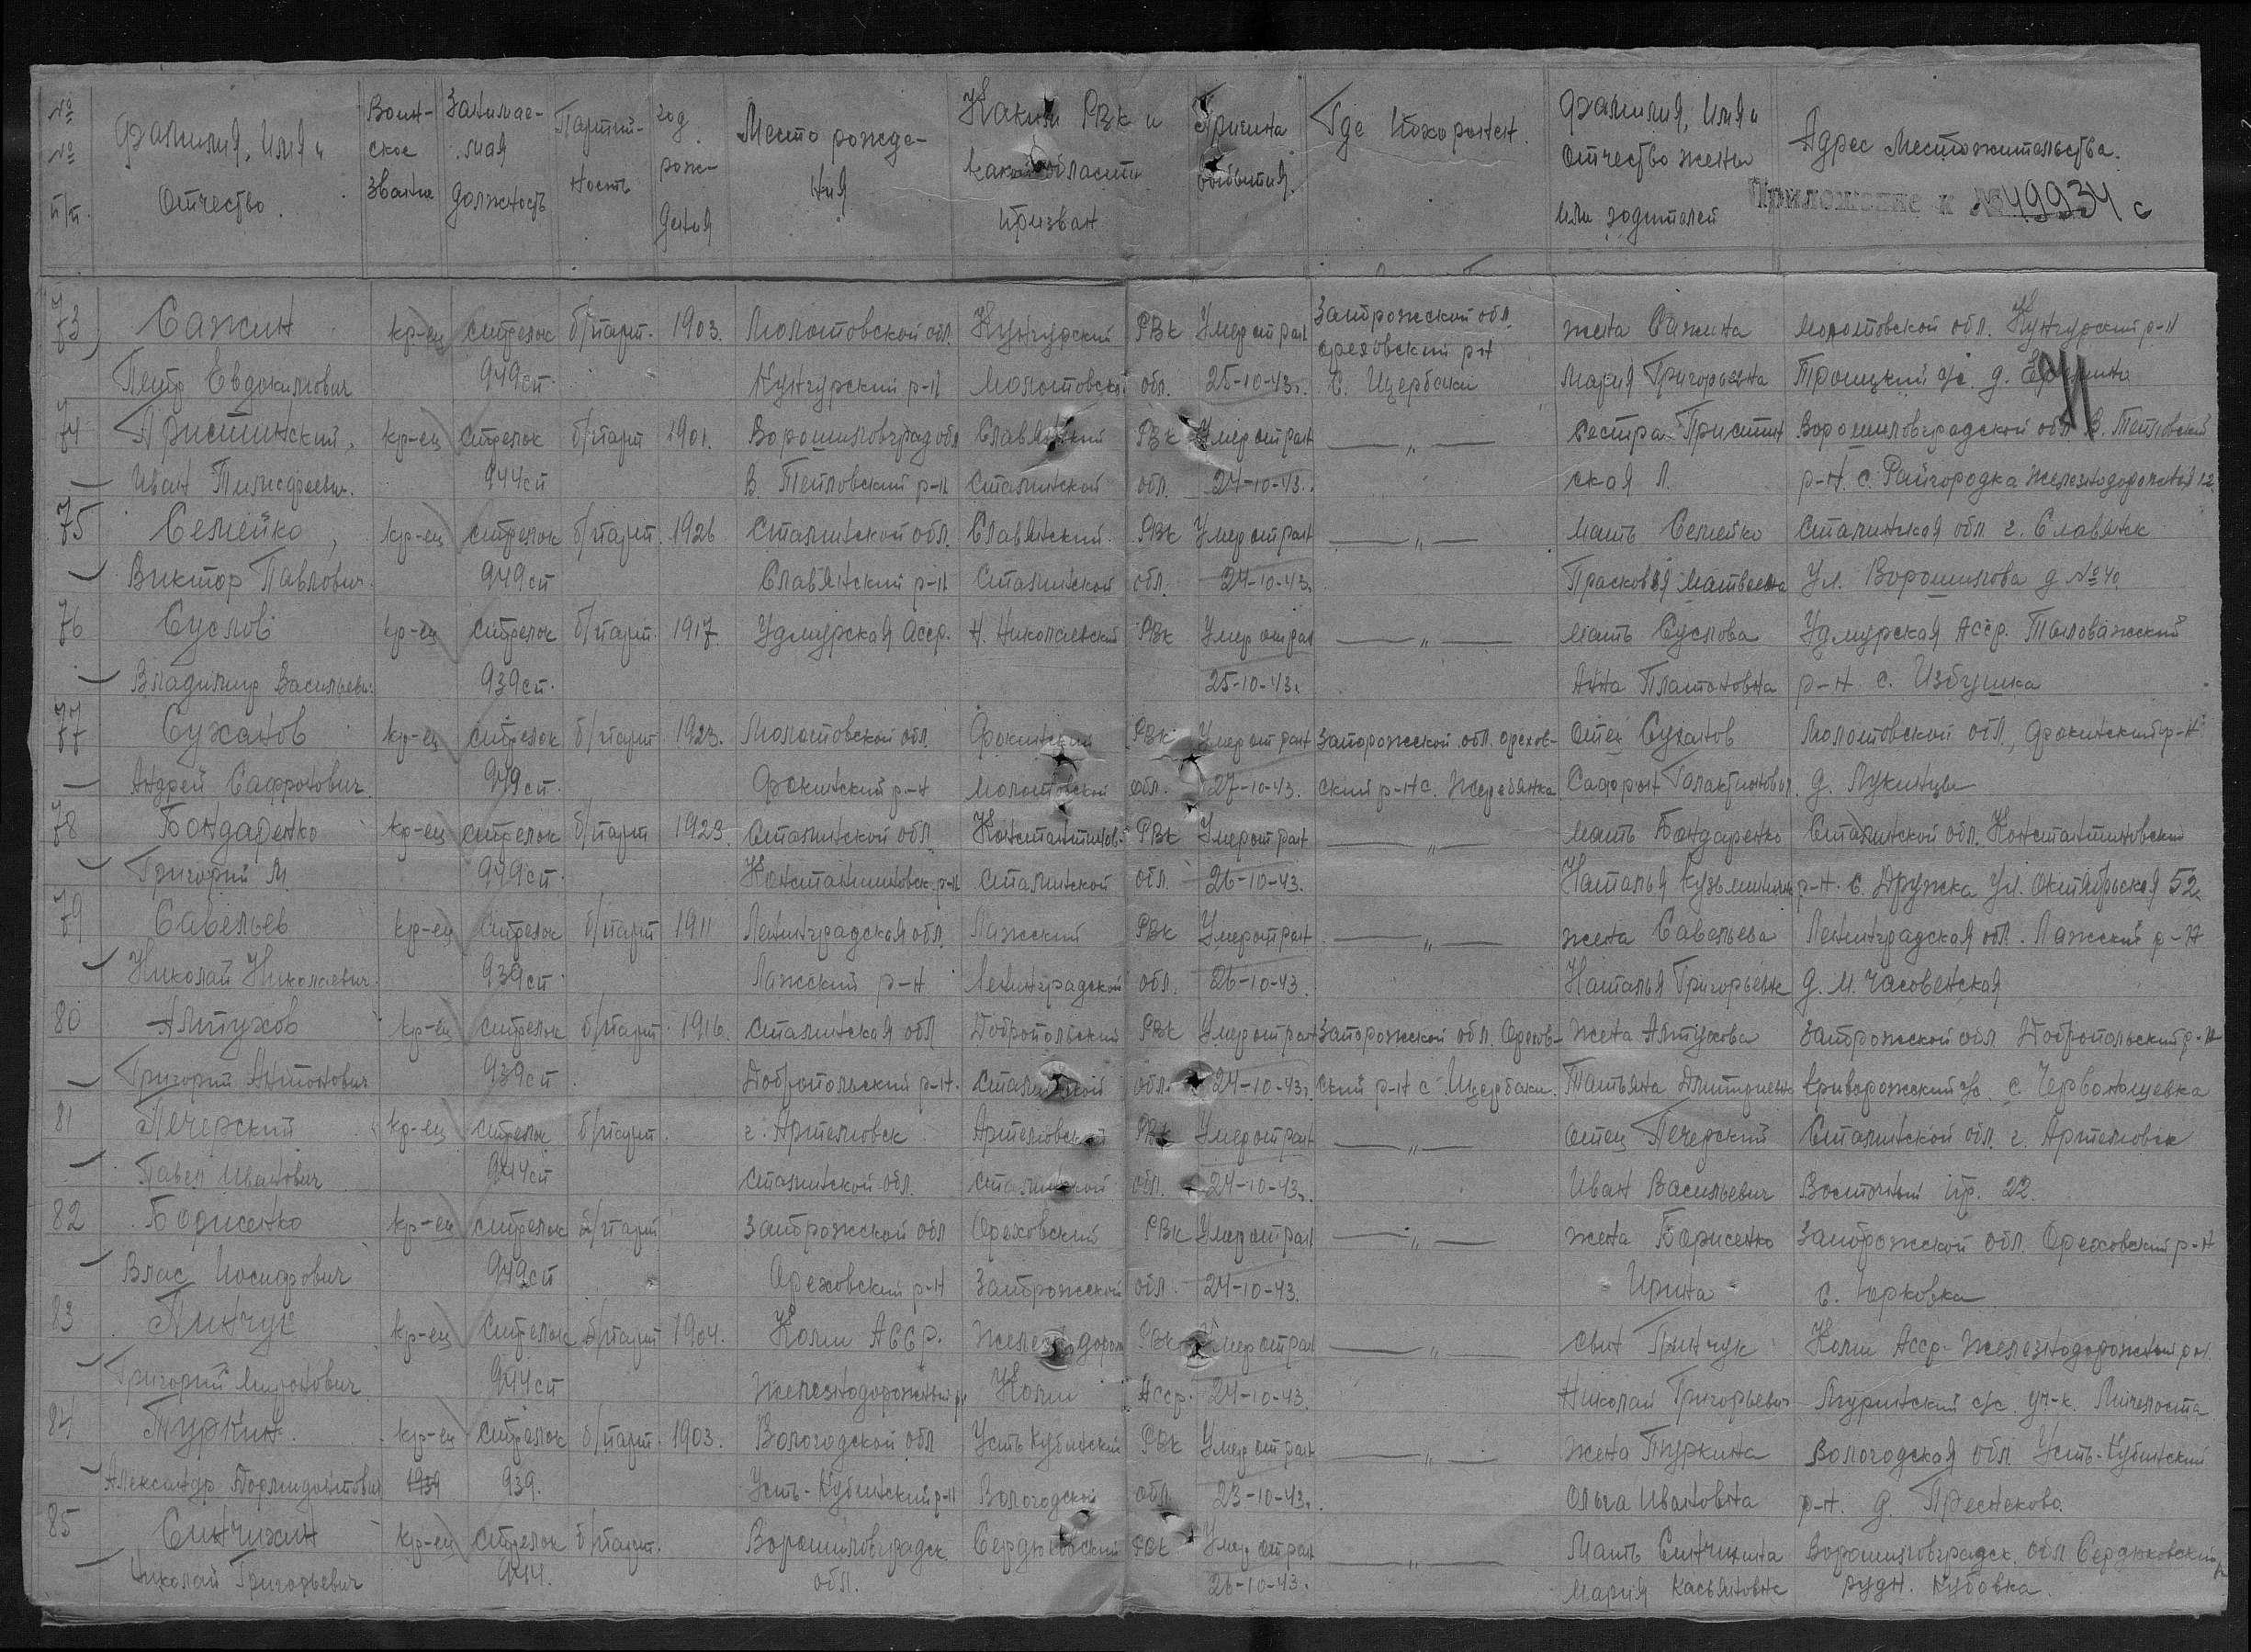 № № п/п. Фамилия, Имя и Отчество. Воинское звание Занимаемая должность Партийность год рождения Место рождения Каким РВК и какой области призван Причина выбытия. Где похоронен. Фамилия, Имя и Отчество жены или родителей Адрес местожительства.
Приложение к № 49934 с
73) Сажин кр-ец стрелок б/парт. 1903. Молотовской обл. Кунгурский РВК Умер от ран Запорожской обл. ореховский р-н жена Сажина Молотовской обл. Кунгурский р-н
Петр Евдокимович 949сп. Кунгурский р-н Молотовской обл. 25-10-43г. С. Щербаки Мария Григорьевна Троицкий с/с. д.
74 Пристинский, кр-ец стрелок б/парт 1901. Ворошиловград обл Славянский РВК Умер от ран —„— сестра Пристин Ворошиловградской обл В. Тепловский
Иван Тимофеевич. 944сп В. Тепловский р-н Сталинской обл. 24-10-43. ская Л. р-н. с. Райгородка Железнодорожная 12.
75 Семейко, кр-ец стрелок б/парт. 1926 Сталинской обл. Славянский. РВК Умер от ран —„— мать Семейко Сталинская обл. г. Славянск
Виктор Павлович. 949сп Славянский р-н Сталинской обл. 24-10-43. Прасковья Матвеевна Ул. Ворошилова д №40.
76 Суслов кр-ец стрелок б/парт. 1917. Удмурская Асср. Н. Николаевский РВК Умер от ран —„— мать Суслова Удмурская Асср.
Владимир Васильеви. 939сп. 25-10-43. Анна Платоновна р-н. с. Избушка
77 Суханов кр-ец стрелок б/парт 1923. Молотовской обл. Фокинский РВК Умер от ран Запорожской обл. орехов- отец Суханов Молотовской обл., Фокинский р-н
Андрей Сафронович. 949сп. Фокинский р-н Молотовской обл. 27-10-43. ский р-н с. Жеребянка Сафрон Галактионович. д. Лукинцы
78 Бондаренко кр-ец стрелок б/парт 1923. Сталинской обл. Константинов. РВК Умер от ран —„— мать Бондаренко Сталинской обл. Константиновский
Григорий М. 949сп. Константиновск. р-н Сталинской обл. 26-10-43. Наталья р-н. с. Дружка Ул. Октябрьская 52.
79 Савельев кр-ец стрелок б/парт 1911 Ленинградская обл. Лажский РВК Умер от ран —„— жена Савельева Ленинградская обл. Лажский р-н
Николай Николаевич. 939сп. Лажский р-н. Ленинградской обл. 26-10-43 Наталья Григорьевн д. М. Часовенская
80 Алтухов кр-ец стрелок б/парт. 1916. Сталинская обл. Добропольский РВК Умер от ран Запорожской обл. Орехов- жена Алтухова Запорожской обл. Добропольский р-н
Григорий Антонович 939сп. Добропольский р-н. Сталинской обл. 24-10-43г. ский р-н с Щербаки. Татьяна Криворожский с/с.
81 Печерский кр-ец стрелок б/парт. г. Артемовск Артемовский РВК Умер от ран —„— отец Печерский Сталинской обл. г. Артемовск
Павел Иванович 944сп Сталинской обл. Сталинской обл. 24-10-43г. Иван Васильевич Восточный пр. 22.
82 Борисенко кр-ец стрелок б/парт Запорожской обл Ореховский РВК Умер от ран —„— жена Борисенко Запорожской обл. Ореховский р-н
Влас Иосифович 949сп Ореховский р-н Запорожской обл. 24-10-43. Ирина с. Юрковка
83 Пинчук кр-ец стрелок б/парт 1904. Коми АССР. Железнодорож РВК Умер от ран —„— сын Пинчук Коми Асср. Железнодорожный р-н.
Григорий Миронович 944сп Железнодорожный р. Коми Асср. 24-10-43. Николай Григорьевич с/с. уч-к.
84 Туркин. кр-ец стрелок б/парт. 1903. Вологодской обл Усть Кубинский РВК Умер от ран —„— жена Туркина Вологодская обл Усть-Кубинский
Александр 1939 939. Усть-Кубинский р-н Вологодской обл. 23-10-43г. Ольга Ивановна р-н. д. Преснеково.
85 Синчихин кр-ец стрелок б/парт. Ворошиловградск Сердюковский РВК Умер от ран —„— Мать Ворошиловградск. обл Сердюковский
Николай Григорьевич 944. обл. 26-10-43. Мария Касьяновна рудн.